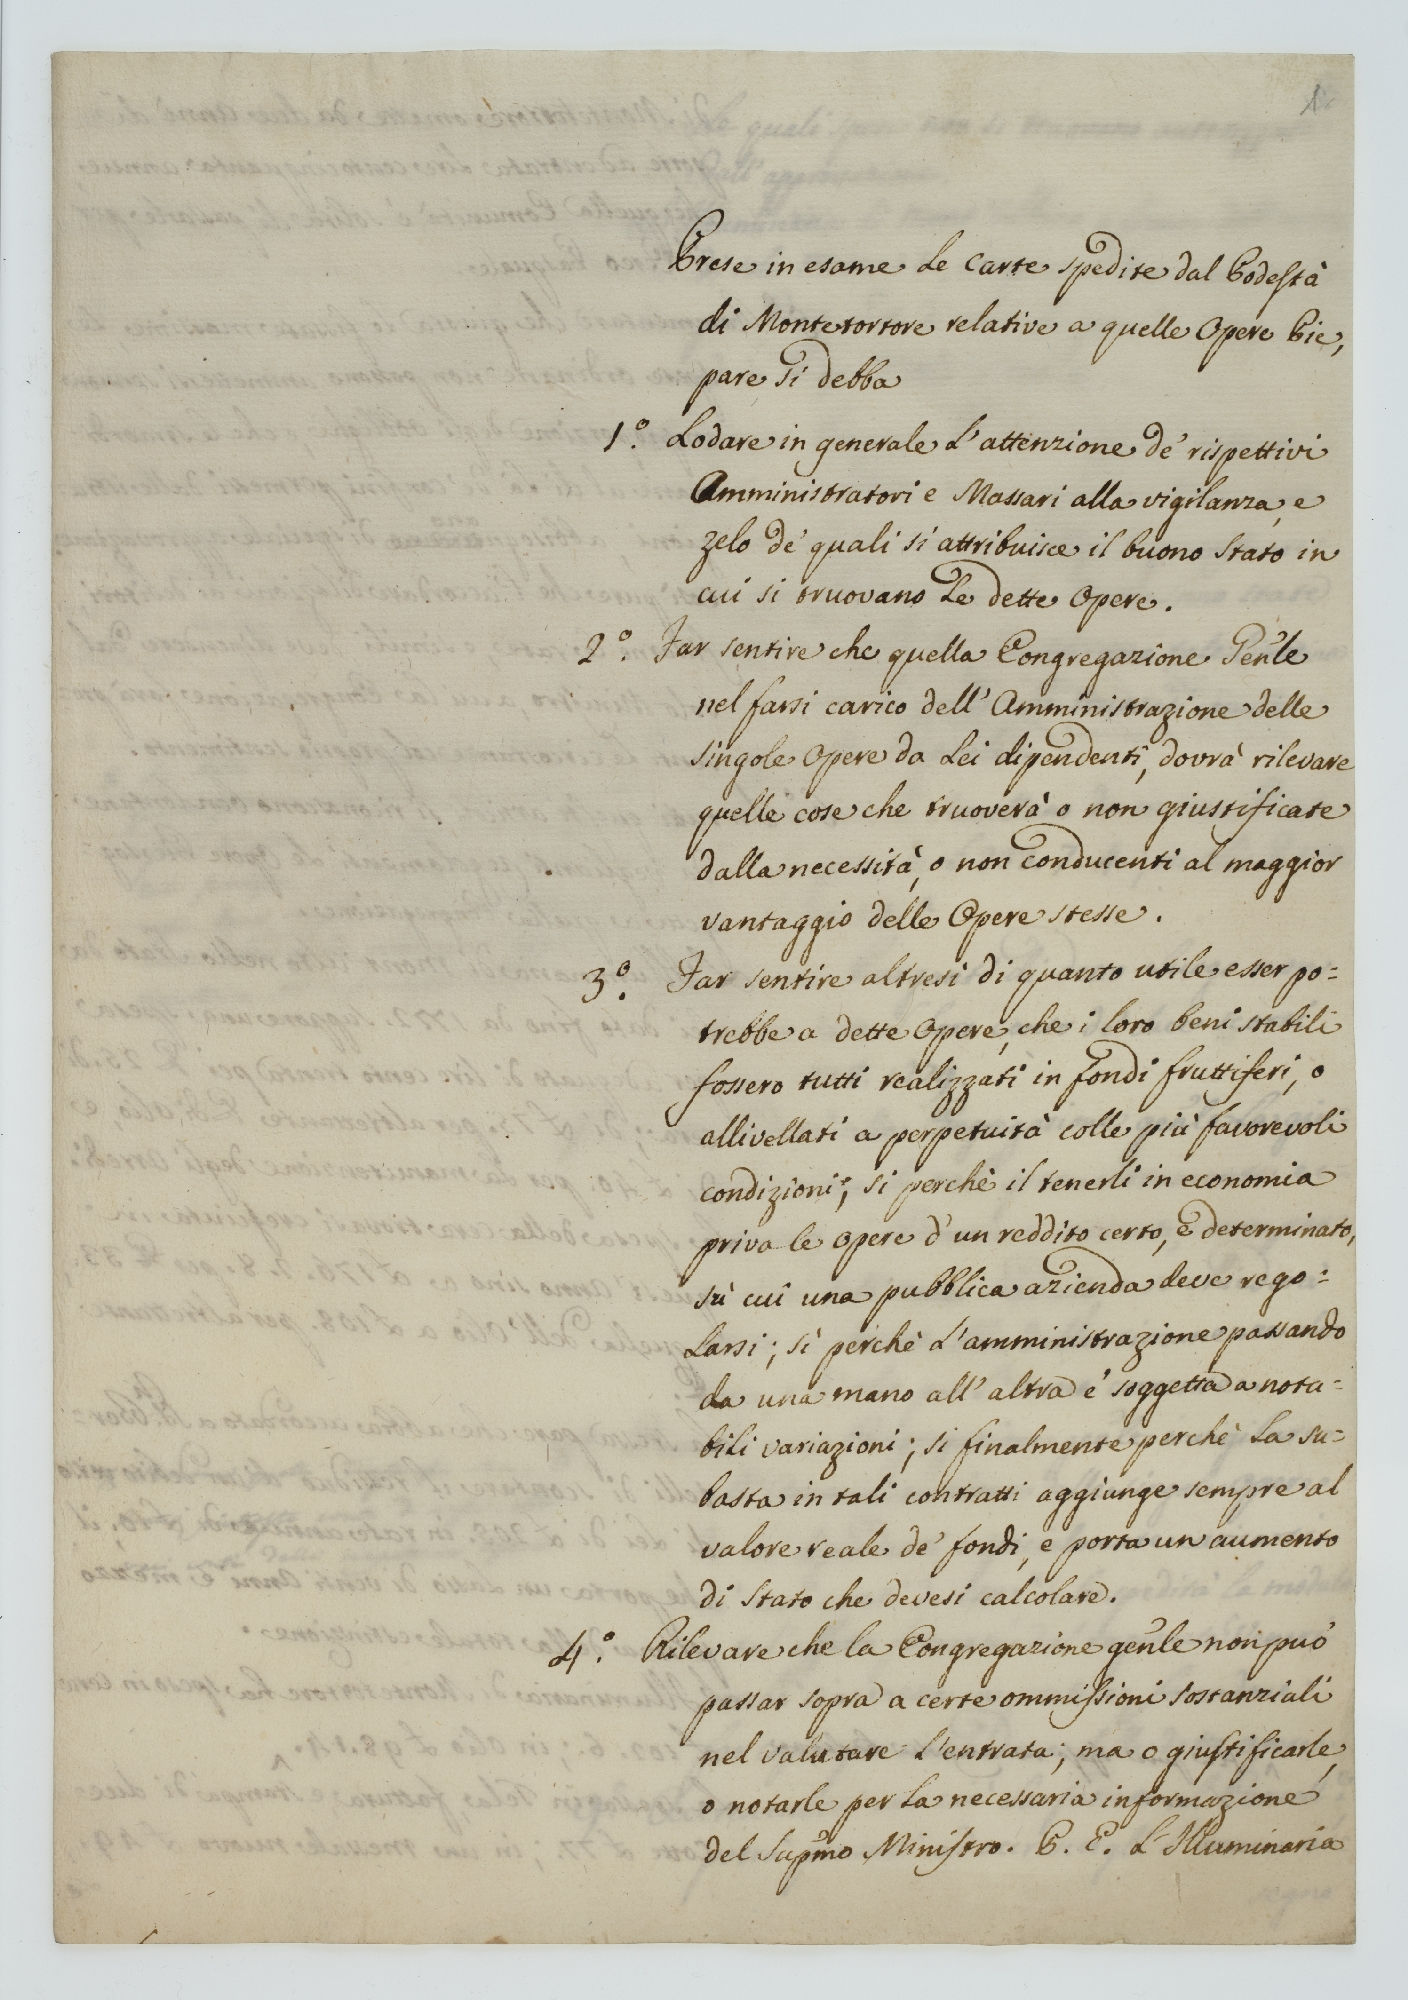 1.
Prese in esame le Carte spedite dal Podestà
di Montetortore relative a quelle Opere Pie,
pare si debba
1.° Lodare in generale l'attenzione de' rispettivi
Amministratori e Massari alla vigilanza, e
zelo de' quali si attribuisce il buono stato in
cui si truovano le dette Opere.
2.° Far sentire che quella Congregazione Gen̄le
nel farsi carico dell'Amministrazione delle
singole Opere da Lei dipendenti, dovrà rilevare
quelle cose che truoverà o non giustificate
dalla necessità, o non conducenti al maggior
vantaggio delle Opere stesse.
3.° Far sentire altresì di quanto utile esser po=
trebbe a dette Opere, che i loro beni stabili
fossero tutti realizzati in fondi fruttiferi, o
allivellati a perpetuità colle più favorevoli
condizioni; sì perchè il tenerli in economia
priva le Opere d'un reddito certo, e determinato,
sù cui una pubblica azienda deve rego=
larsi; sì perchè l'amministrazione passando
da una mano all'altra è soggetta a nota=
bili variazioni; sì finalmente perchè la su=
basta in tali contratti aggiunge sempre al
valore reale de' fondi, e porta un aumento
di Stato che devesi calcolare.
4.° Rilevare che la Congregazione gen̄le non può
passar sopra a certe ommissioni sostanziali
nel valutare l'entrata; ma o giustificarle,
o notarle per la necessaria informazione
del Sup̄mo Ministro. P. E. L'Illuminaria